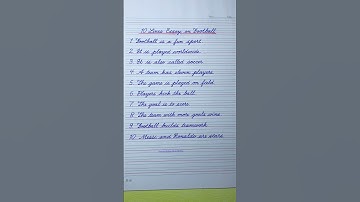 10 Lines Essay on Football
1. Football is a fun sport
2. It is played worldwide
3. It is also called soccer
4. A team has eleven players
5. The game is played on field
6. Players kick the ball
7. The goal is to score
8. The team with more goals wins
9. Football builds teamwork
10. Messi and Ronaldo are stars